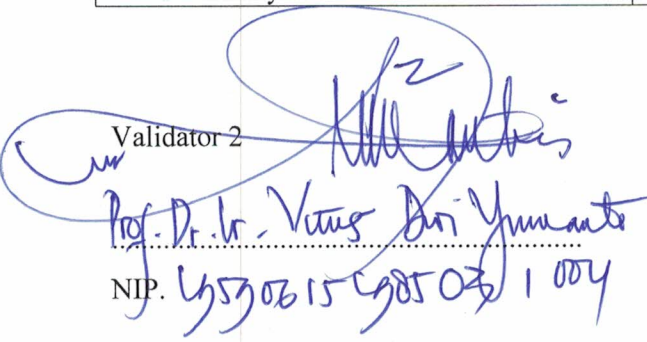 Validator 2
Prof. Dr. Ir. Vitus Dwi Yunianto
NIP. 19590615 198503 1 004